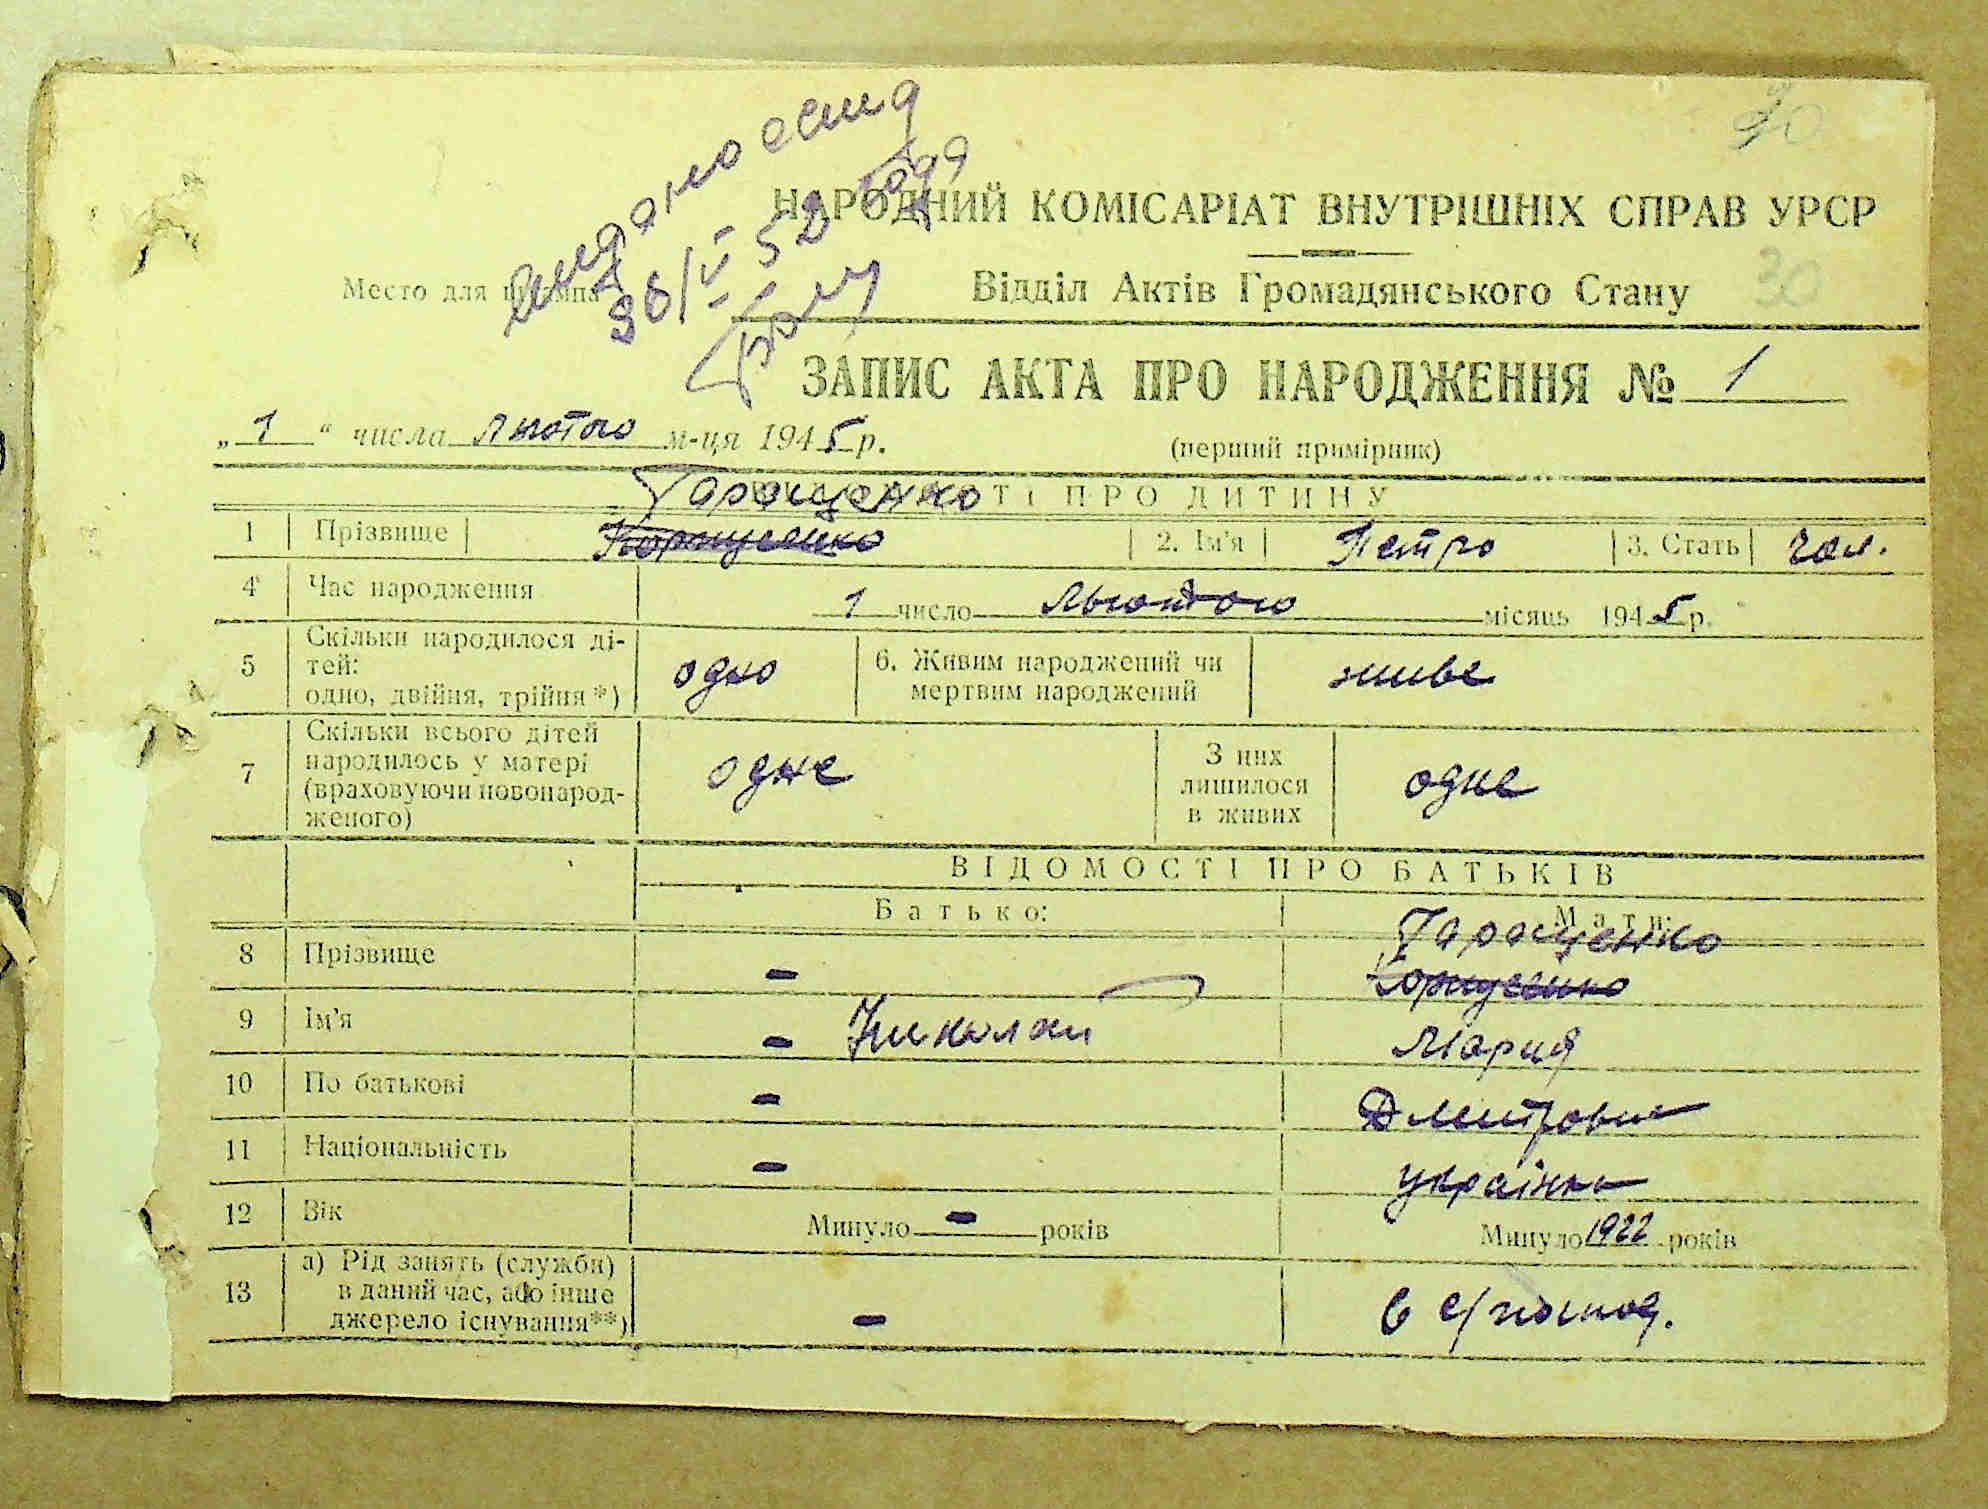 30
НАРОДНИЙ КОМІСАРІАТ ВНУТРІШНІХ СПРАВ УРСР
Место для штампа
Відділ Актів Громадянського Стану 30
52 года
ЗАПИС АКТА ПРО НАРОДЖЕННЯ № 1
„ 1 “ числа лютого м-ця 1945 р.
(перший примірник)
Таращенко
ВІДОМОСТІ ПРО ДИТИНУ
1 Прізвище 2. Ім'я Петро 3. Стать чол.
4 Час народження 1 число Лютого місяць 1945 р.
5 Скільки народилося ді-
тей:
одно, двійня, трійня*) одно 6. Живим народжений чи
мертвим народжений живе
7 Скільки всього дітей
народилось у матері
(враховуючи новонарод-
женого) одне З них
лишилося
в живих одне
ВІДОМОСТІ ПРО БАТЬКІВ
Батько: Мати:
Таращенко
8 Прізвище –
9 Ім'я – Николай Мария
10 По батькові – Дмитровна
11 Національність – українка
12 Вік Минуло – років Минуло 1922 років
13 а) Рід занять (служби)
в даний час, або інше
джерело існування**) – в с/господ.